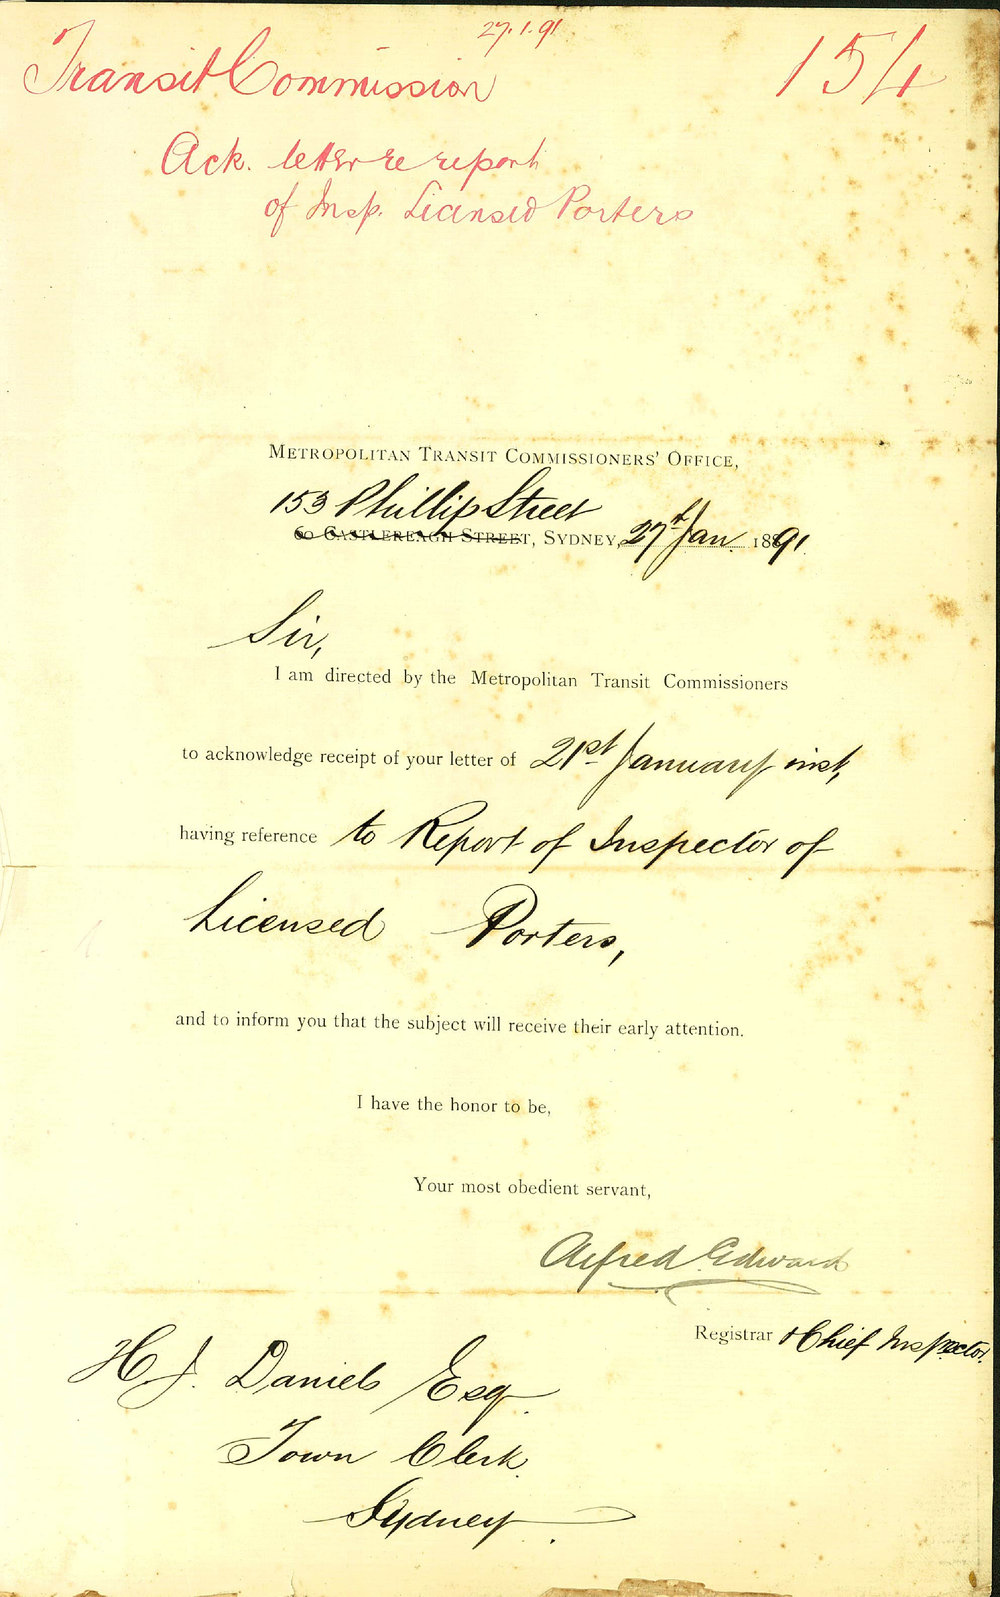 27.1.91
Transit Commission
154
Ack. letter re report
of Insp. Licensed Porters
METROPOLITAN TRANSIT COMMISSIONERS' OFFICE,
153 Phillip Street
60 CASTLEREAGH STREET, SYDNEY, 27th Jan. 1891.
Sir,
I am directed by the Metropolitan Transit Commissioners
to acknowledge receipt of your letter of 21st January inst,
having reference to Report of Inspector of
Licensed Porters,
and to inform you that the subject will receive their early attention.
I have the honor to be,
Your most obedient servant,
Alfred Edward
Registrar & Chief Inspector.
H. J. Daniels Esq.
Town Clerk.
Sydney.